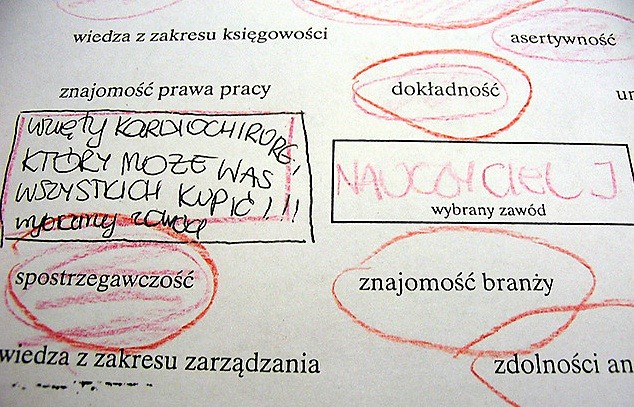 wiedza z zakresu księgowości
asertywność
znajomość prawa pracy
dokładność
um
WZIĘTY KARDIOCHIRURG,
KTÓRY MOŻE WAS
WSZYSTKICH KUPIĆ!!!
wybrany zawód
NAUCZYCIEL J
wybrany zawód
spostrzegawczość
znajomość branży
wiedza z zakresu zarządzania
zdolności an